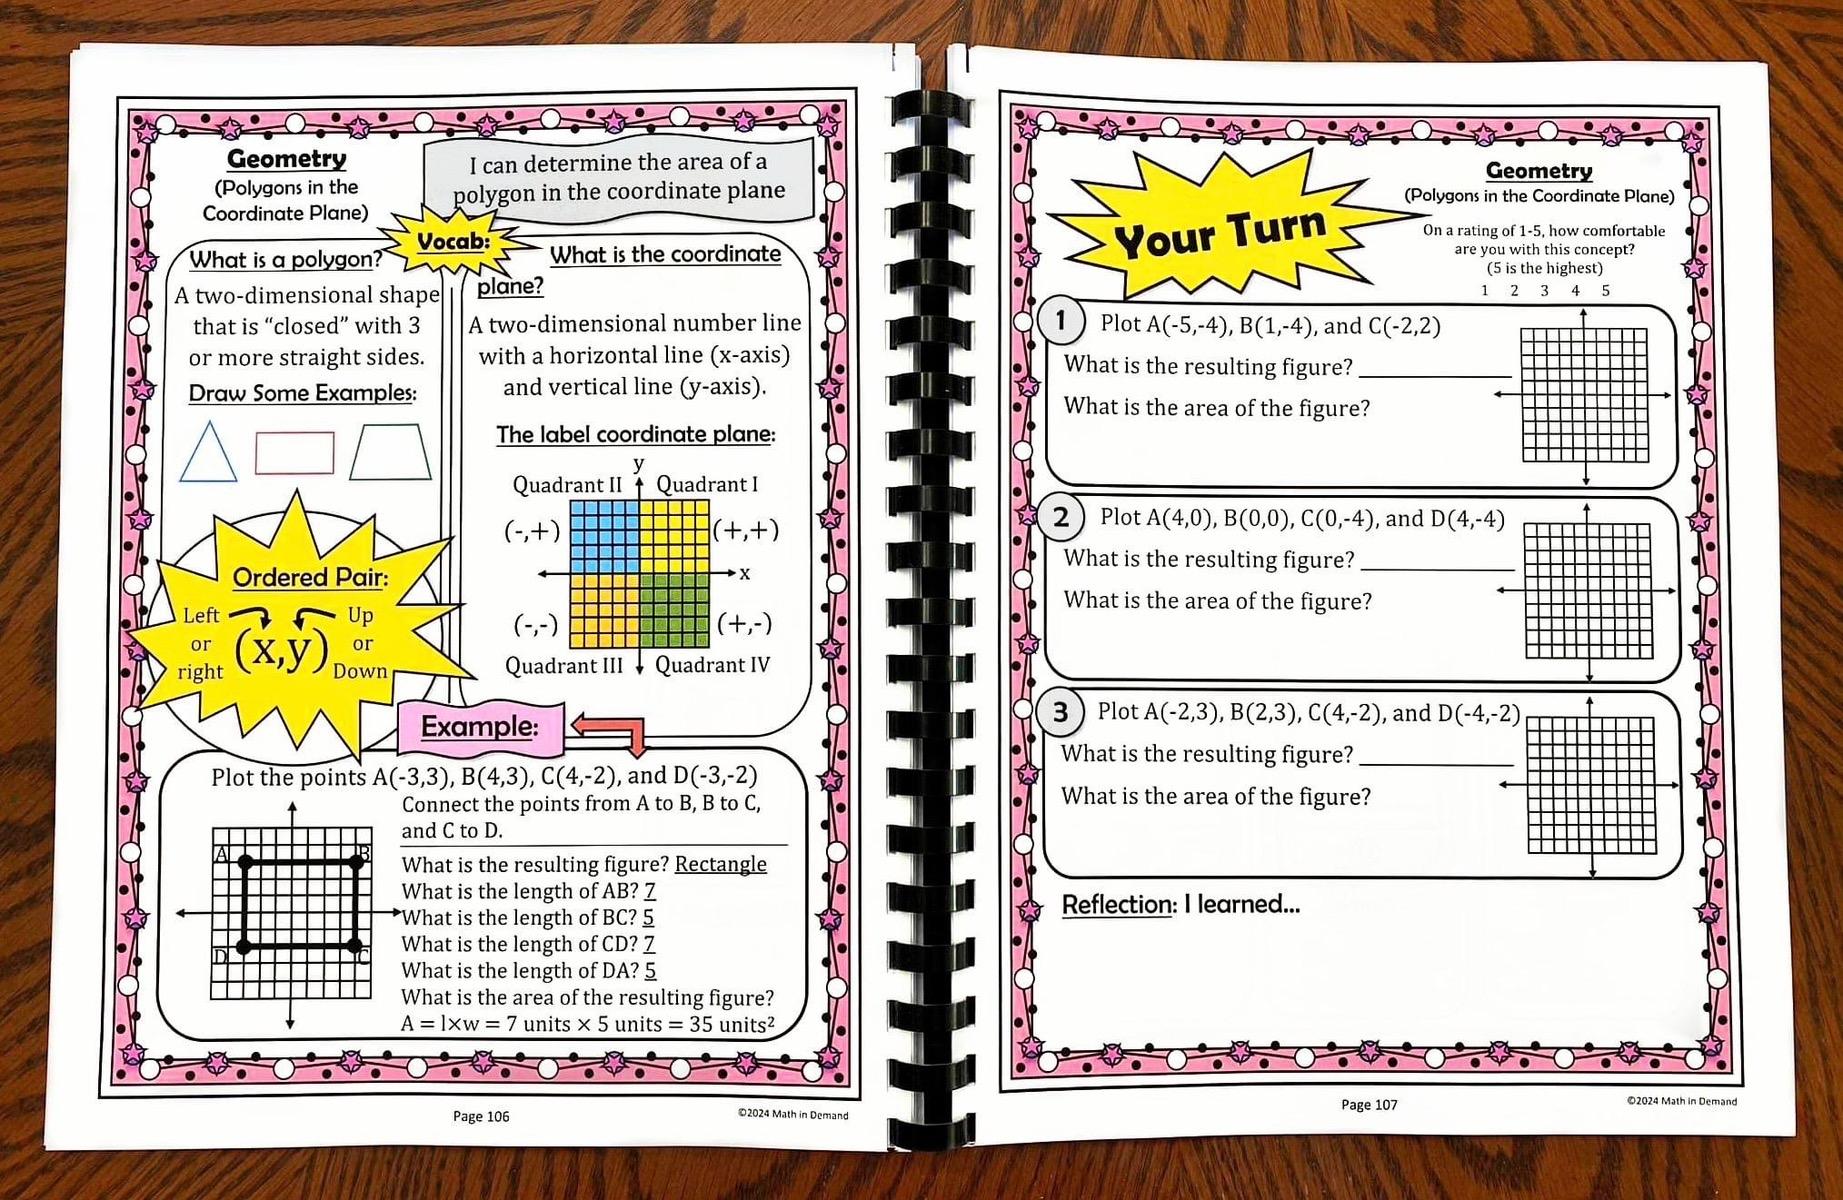 Geometry
(Polygons in the
Coordinate Plane)
I can determine the area of a
polygon in the coordinate plane
Vocab:
What is a polygon?
A two-dimensional shape
that is “closed” with 3
or more straight sides.
Draw Some Examples:
Ordered Pair:
Left
or
right
(x,y)
Up
or
Down
What is the coordinate
plane?
A two-dimensional number line
with a horizontal line (x-axis)
and vertical line (y-axis).
The label coordinate plane:
y
Quadrant II
Quadrant I
(-,+)
(+,+)
x
(-,-)
(+,-)
Quadrant III
Quadrant IV
Example:
Plot the points A(-3,3), B(4,3), C(4,-2), and D(-3,-2)
Connect the points from A to B, B to C,
and C to D.
A
B
D
C
What is the resulting figure? Rectangle
What is the length of AB? 7
What is the length of BC? 5
What is the length of CD? 7
What is the length of DA? 5
What is the area of the resulting figure?
A = l×w = 7 units × 5 units = 35 units²
Page 106
©2024 Math in Demand
Your Turn
Geometry
(Polygons in the Coordinate Plane)
On a rating of 1-5, how comfortable
are you with this concept?
(5 is the highest)
1 2 3 4 5
1
Plot A(-5,-4), B(1,-4), and C(-2,2)
What is the resulting figure?
What is the area of the figure?
2
Plot A(4,0), B(0,0), C(0,-4), and D(4,-4)
What is the resulting figure?
What is the area of the figure?
3
Plot A(-2,3), B(2,3), C(4,-2), and D(-4,-2)
What is the resulting figure?
What is the area of the figure?
Reflection: I learned...
Page 107
©2024 Math in Demand